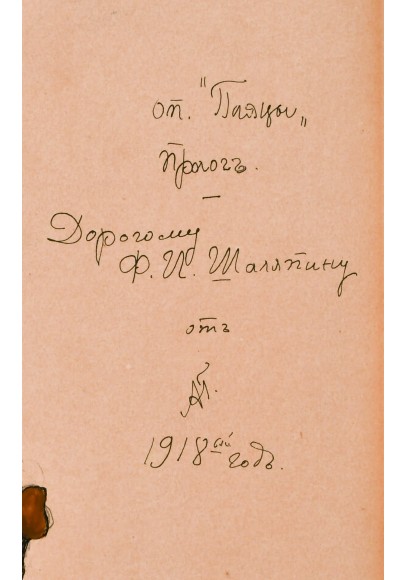 оп. "Паяцы„
Прологъ.
Дорогому
Ф. И. Шаляпину
отъ
АП.
1918ый годъ.